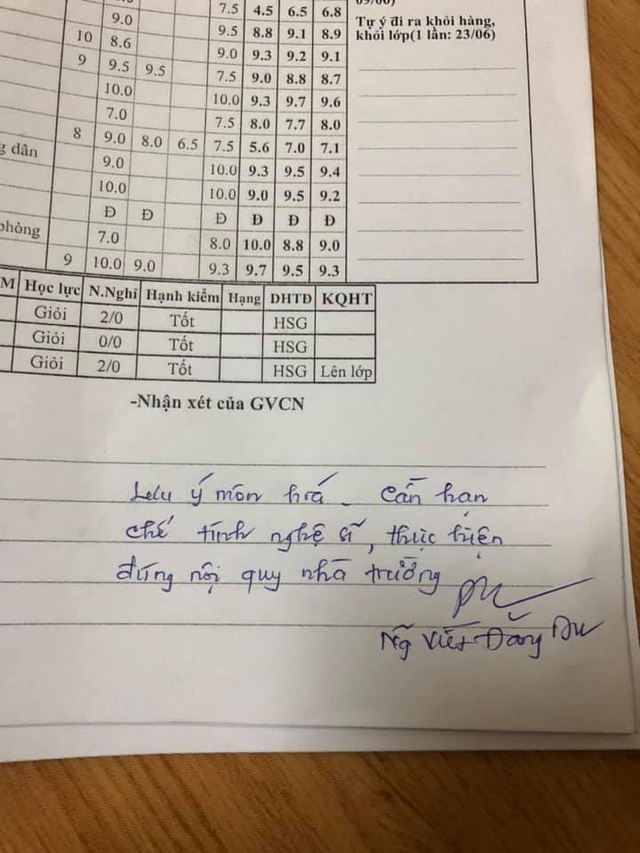 09/06)
Tự ý đi ra khỏi hàng,
khỏi lớp(1 lần: 23/06)
7.5 4.5 6.5 6.8
9.0 9.5 8.8 9.1 8.9
10 8.6 9.0 9.3 9.2 9.1
9 9.5 9.5 7.5 9.0 8.8 8.7
10.0 10.0 9.3 9.7 9.6
7.0 7.5 8.0 7.7 8.0
8 9.0 8.0 6.5 7.5 5.6 7.0 7.1
g dân 9.0 10.0 9.3 9.5 9.4
10.0 10.0 9.0 9.5 9.2
Đ Đ Đ Đ Đ Đ
phòng 7.0 8.0 10.0 8.8 9.0
9 10.0 9.0 9.3 9.7 9.5 9.3
M Học lực N.Nghỉ Hạnh kiểm Hạng DHTĐ KQHT
Giỏi 2/0 Tốt HSG
Giỏi 0/0 Tốt HSG
Giỏi 2/0 Tốt HSG Lên lớp
-Nhận xét của GVCN
Lưu ý môn hoá. Cần hạn
chế tính nghệ sĩ, thực hiện
đúng nội quy nhà trường
Ng Viết Đăng Du